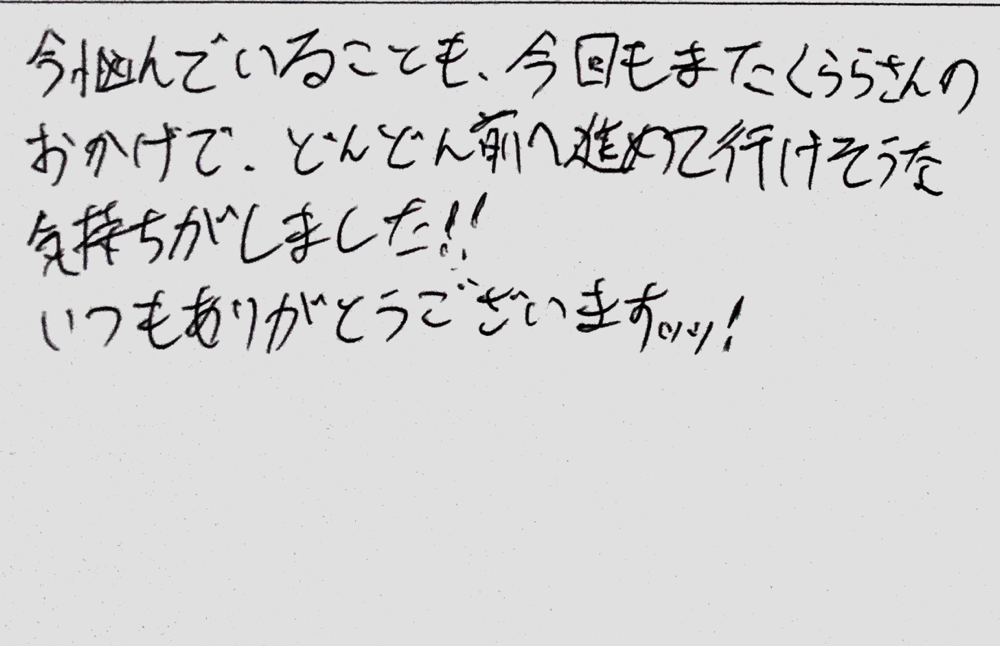 今悩んでいることも、今回もまたくららさんの
おかげで、どんどん前へ進めて行けそうな
気持ちがしました!!
いつもありがとうございますッッ!